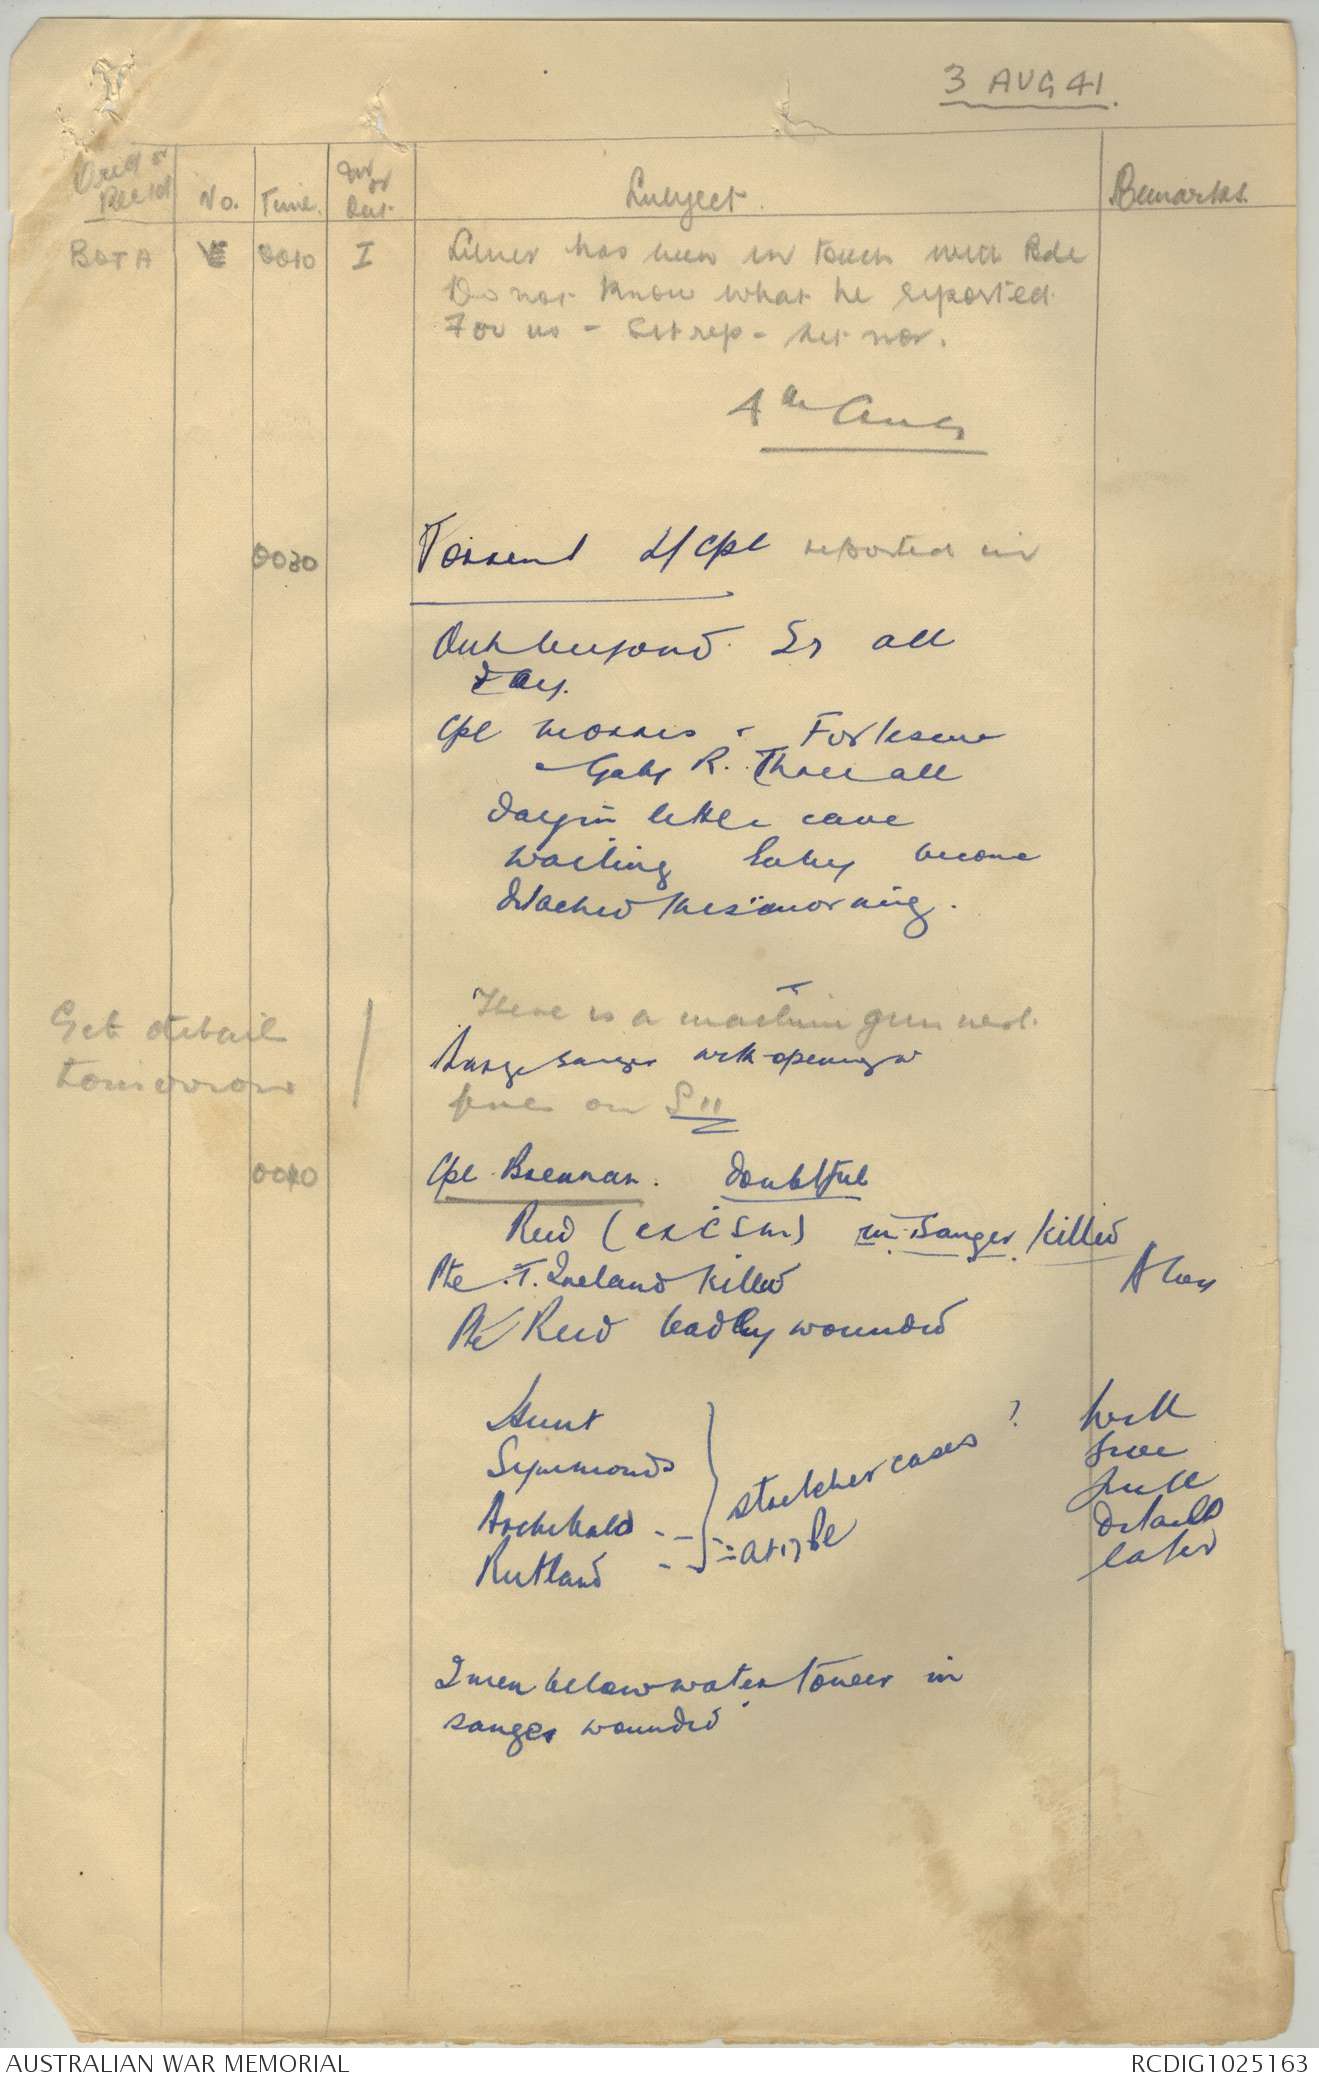 3 AUG 41.
Orig or
Rec'd
No.
Time.
In or
Out
Subject.
Remarks.
BOTA
0010
I
has been in touch with Bde
Do not know what he reported
For us - Sitrep - Sit nor.
4th Aug
0030
L/Cpl reported in
Out beyond S7 all
day.
Cpl Morris
R. Three all
day in little cave
waiting
detached this morning.
Get detail
tomorrow
There is a machine gun nest.
Large sanger with openings
fires on S11
0040
Cpl Brennan. Doubtful
Reid (ex CSM) in Sanger killed
Pte T. Ireland killed
A Coy
Pte Reid badly wounded
Hunt
Symmonds
Archibald
Rutland
stretcher cases ?
= at 17 Pl
Will
give
full
details
later
2 men below water tower in
sanger wounded
AUSTRALIAN WAR MEMORIAL
RCDIG1025163